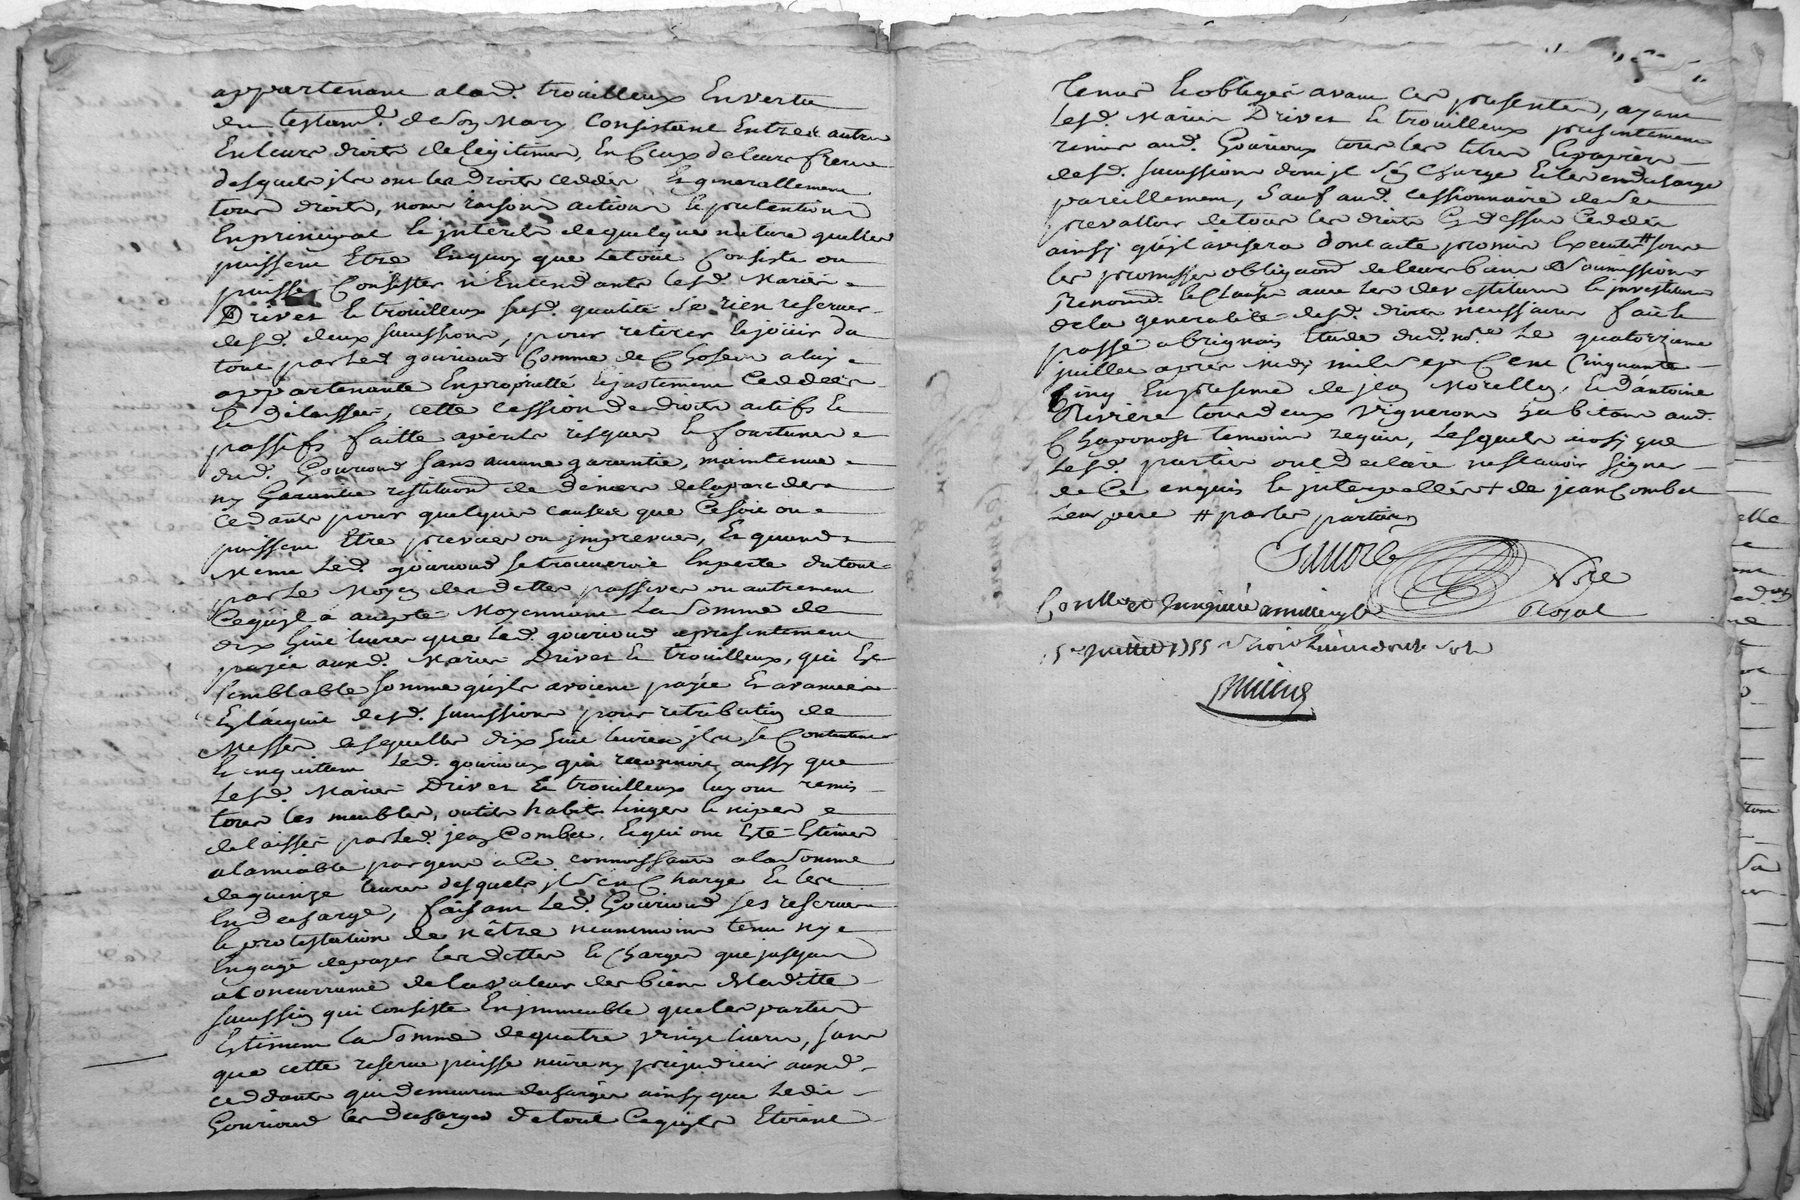 appartenant a lad. trouilleux En vertu
du testamt. de son Mary Consistant Entre autre
En leurs droits de legitimes, En Ceux de leurs freres
desquels ils ont les droits ceddés Et generallement
tous droits, noms raisons actions & pretentions
En principal & jnterets de quelque nature quelles
puissent Etre En quoy que le tout Consiste ou
puisse Consister n'Entendants lesd. Mariés
Drivet & trouilleux sesd. qualité se rien reserver
desd. deux successions, pour retirer & jouir du
tout par led. gourioud Comme de Choses a luy
appartenante En proprietté & justement Ceddées
& délaissées, cette cession de droits actifs &
passifs faitte aperils risques & fortunes
dud. Gourioud sans aucune garentie, maintenue
ny Garantie restituon de deniers de la part des
cedants pour quelques causes que Ce soit ou
puissent Etre prevues ou jmprevues, Et quand
Meme led. gourioud se trouveroit En perte du tout
par le Moyen des dettes passives ou autrement
Ce quil a accepté Moyennant la Somme de
dix huit livres que led. gourioud a presentement
payée auxd. Mariés Drivet & trouilleux, qui Est
semblable somme quils avoient payée Et avancée
En lacquit desd. successions pour retribution de
Messes desquelles dix huit livres ils se Contentent
& en quittent led. gourioux qui reconnoit aussy que
lesd. Mariés Drivet & trouilleux luy ont remis
tous les meubles, outils habits linges & nipes
delaissés par led. jean Combet, & qui ont Eté Estimés
alamiable par gens a Ce connoissants a la Somme
de quinze livres desquels il sen Charge Et les
En descharge, faisant led. Gourioud ses reserves
& protestation de n'être neanmoins tenu ny
Engagé de payer les dettes & Charges que jusqua
a Concurrance de la valeur des biens de laditte
succession qui consiste En jmmeuble que les parties
Estiment la Somme de quatre vingt livres, sans
que cette reserve puisse nuire ny prejudicier auxd.
ceddants qui demeurent deschargés ainsy que ledit
Gourioud les descharges de tout Ce quils Etoient
tenus & obligés avant Ces presentes, ayant
lesd. Mariés Drivet & trouilleux presentement
remis aud. Gourioux tous les titres & papiers
desd. successions dont jl sen Charge & les en descharge
pareillement, Sauf aud. cessionnaire de Se
prevalloir de tous les droits Cy dessus Ceddés
ainsy quil avisera dont acte promis Executer # sous
les promesses obligaons de leurs biens Soumissions
Renonons. & Clauses avec les devestitures & jnvestitures
de la generalité desd. droits necessaires fait &
passé a brignais Etude dud. nore. le quatorzieme
juillet apres midy mil sept Cent Cinquante
Cinq En presence de jean Morellon, & d'antoine
Riviere tous deux vignerons habitans aud.
Chaponost temoins requis, lesquels aussy que
lesd. parties ont declaré ne scavoir signer
de Ce enquis & jnterpellés + de jean Combet
leur frere # par les parties
Nore
Royal
15e juillet 1755